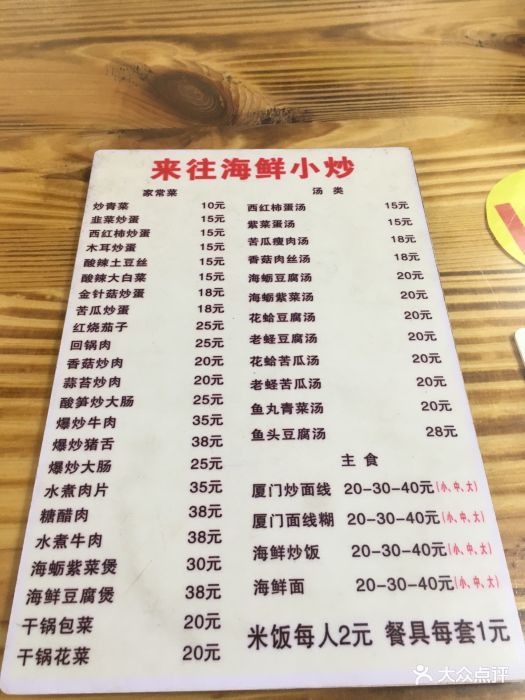 来往海鲜小炒
家常菜
炒青菜 10元
韭菜炒蛋 15元
西红柿炒蛋 15元
木耳炒蛋 15元
酸辣土豆丝 15元
酸辣大白菜 15元
金针菇炒蛋 18元
苦瓜炒蛋 18元
红烧茄子 25元
回锅肉 25元
香菇炒肉 20元
蒜苔炒肉 20元
酸笋炒大肠 25元
爆炒牛肉 35元
爆炒猪舌 38元
爆炒大肠 25元
水煮肉片 35元
糖醋肉 38元
水煮牛肉 38元
海蛎紫菜煲 30元
海鲜豆腐煲 38元
干锅包菜 20元
干锅花菜 20元
汤 类
西红柿蛋汤 15元
紫菜蛋汤 15元
苦瓜瘦肉汤 18元
香菇肉丝汤 18元
海蛎豆腐汤 20元
海蛎紫菜汤 20元
花蛤豆腐汤 20元
老蛏豆腐汤 20元
花蛤苦瓜汤 20元
老蛏苦瓜汤 20元
鱼丸青菜汤 20元
鱼头豆腐汤 28元
主 食
厦门炒面线 20-30-40元(小、中、大)
厦门面线糊 20-30-40元(小、中、大)
海鲜炒饭 20-30-40元(小、中、大)
海鲜面 20-30-40元(小、中、大)
米饭每人2元 餐具每套1元
大众点评